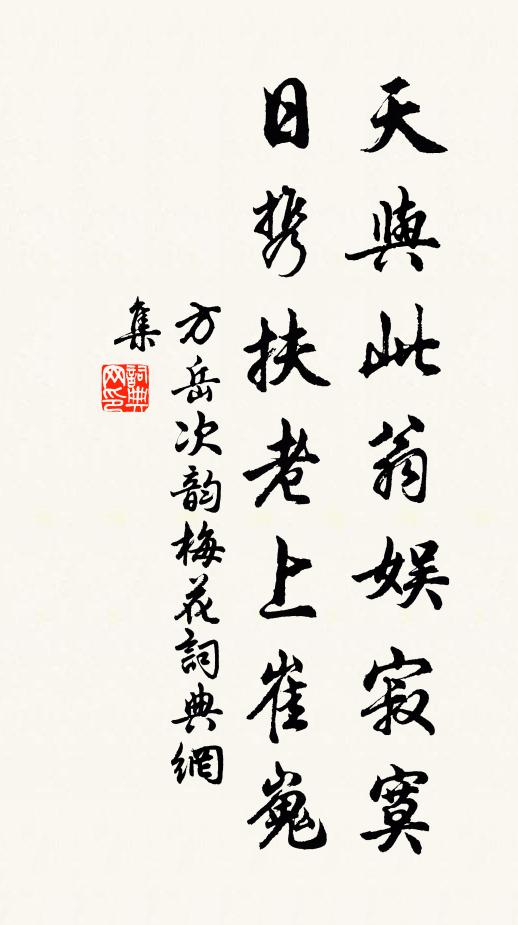 天與此翁娱寂寞
日携扶老上崔嵬
方岳次韵梅花詞典網
集
詞典网印